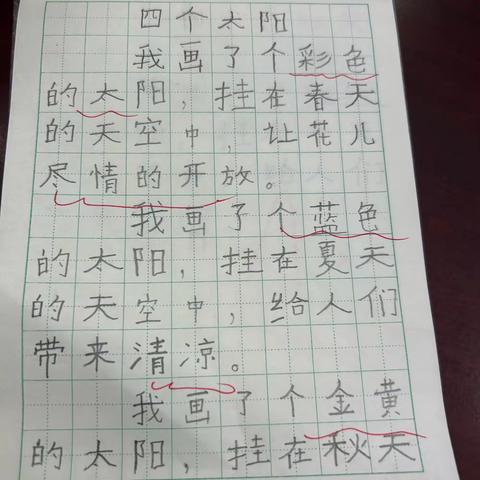 四个太阳
我画了个彩色
的太阳，挂在春天
的天空中，让花儿
尽情的开放。
我画了个蓝色
的太阳，挂在夏天
的天空中，给人们
带来清凉。
我画了个金黄
的太阳，挂在秋天